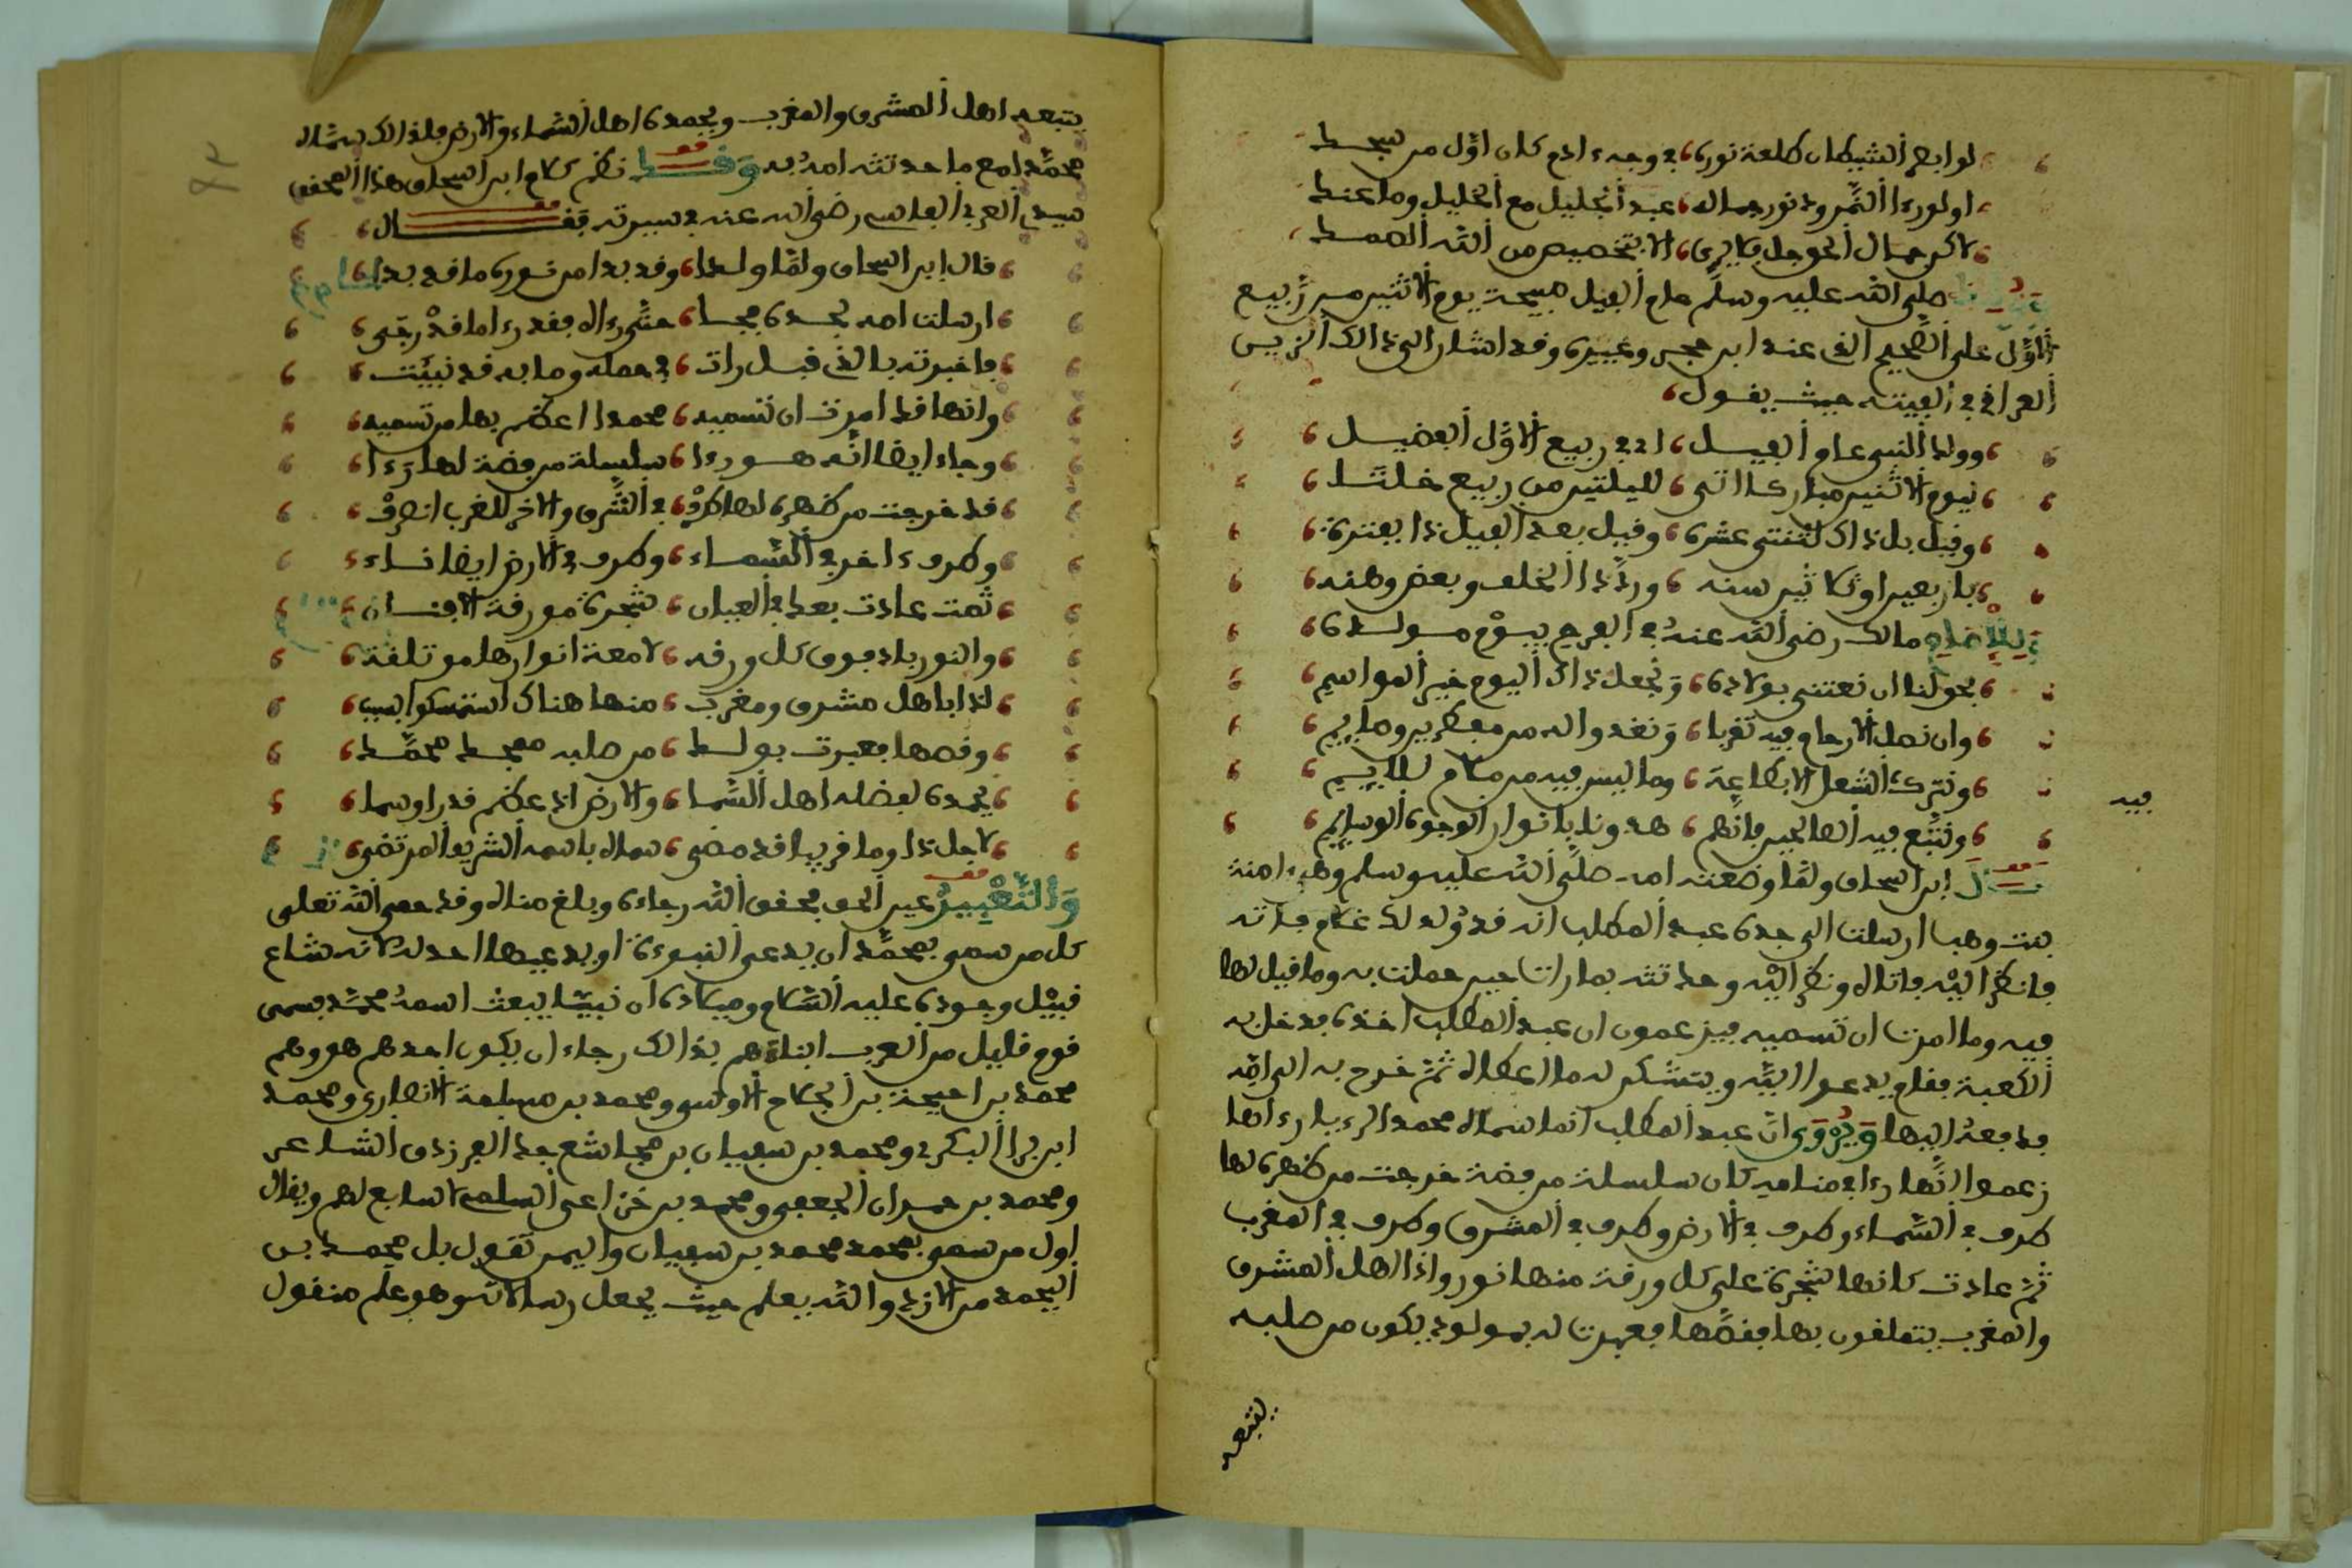 لو ابصر الشيطان طلعة نوره في وجه ءادم كان اول من سجد
او لو رءا النمرود نور جماله عبد الجليل مع الخليل وما عند
لاكن جمال الحق جل فلا يرى الا بتخصيص من الله الصمد
صلى الله عليه وسلم عام الفيل صبيحة يوم الاثنين من ربيع
الاول على الصحيح الذي عند ابن حجر وغيره وقد اشار الى ذالك الزين
العراقي في الفيته حيث يقول
وولد النبي عام الفيل اي في ربيع الاول الفضيل
ليوم الاثنين مباركا اتى لليلتين من ربيع خلتا
وقيل بل ذاك لثنتي عشره وقيل بعد الفيل ذا بفتره
باربعين او ثلاثين سنه ورد ذا الخلف وبعض وهنه
مالك رضي الله عنه في الفرح بيوم مولده
يحق لنا ان نعتني بولاده ونجعل ذاك اليوم خير المواسم
وان نصل الارحام فيه تقربا ونغدوا له من مفطرين وصايم
ونترك الشغل الا بطاعة وما ليس فيه من ملام للايم
فيه
ونتبع فيه الصالحين فانهم هدونا بانوار الوجوه الوسايم
ابن اسحاق ولما وضعته امه صلى الله عليه وسلم وهي ءامنة
بنت وهب ارسلت الى جده عبد المطلب انه قد ولد لك غلام فاته
فانظر اليه فاتاه ونظر اليه وحدثته بما رات حين حملت به وما قيل لها
فيه وما امرت ان تسميه فيزعمون ان عبد المطلب اخذه فدخل به
الكعبة فقام يدعوا الله ويتشكر له ما اعطاه ثم خرج به الى امه
فدفعه اليها ويروى ان عبد المطلب انما سماه محمدا لرءيا رءاها
زعموا انه رءا في منامه كان سلسلة من فضة خرجت من ظهره لها
طرف في السماء وطرف في الارض وطرف في المشرق وطرف في المغرب
ثم عادت كانها شجرة على كل ورقة منها نور واذا اهل المشرق
والمغرب يتعلقون بها فقصها فعبرت له بمولود يكون من صلبه
يتبعه
يتبعه اهل المشرق والمغرب ويحمده اهل السماء والارض فلذالك سماه
محمدا مع ما حدثته امه به وقد نظم كلام ابن اسحاق هذا المحقق
سيدي العربي الفاسي رضي الله عنه في سيرته فقال
قال ابن اسحاق ولما ولدا وقد بدا من نوره ما قد بدا
ارسلت امه لجده فجا حتى رءاه فقدرءا ما قد رجى
فاخبرته بالذي قبل رات في حمله وما به قد نبيت
وانها قد امرت ان تسميه محمدا اعظم بها من تسميه
وجاء ايضا انه هو رءا سلسلة من فضة لها رءا
قد خرجت من ظهره لها طرف في الشرق والاخر للغرب انصرف
وطرف ءاخر في السماء وطرف في الارض ايضا ناء
ثمت عادت بعد في العيان شجرة مورقة الافنان
والنور باد فوق كل ورقه لامعة انوارها موتلقة
اذا باهل مشرق ومغرب منها هناك استمسكوا بسبب
وقصها فعبرت بولد من صلبه ممجد محمد
يحمده لفضله اهل السما والارض اذ عظم قدرا وسما
لاجل ذا وما قريبا قد مضى سماه باسمه الشريف المرتضى
كل من سمي بمحمد ان يدعي النبوءة او يدعيها احد له لانه شاع
قبيل وجوده عليه السلام وميلاده ان نبيا يبعث اسمه محمد فسمى
قوم قليل من العرب ابناءهم بذالك رجاء ان يكون احدهم هو وهم
محمد بن احيحة بن الجلاح الاوسي ومحمد بن مسلمة الانصاري ومحمد
ابن برا البكري ومحمد بن سفيان بن مجاشع جد الفرزدق الشاعر
ومحمد بن حمران الجعفي ومحمد بن خزاعي السلمي لا سابع لهم ويقال
اول من سمي بمحمد محمد بن سفيان واليمن تقول بل محمد بن
اليحمد من الازد والله يعلم حيث يجعل رسالاته وهو علم منقول